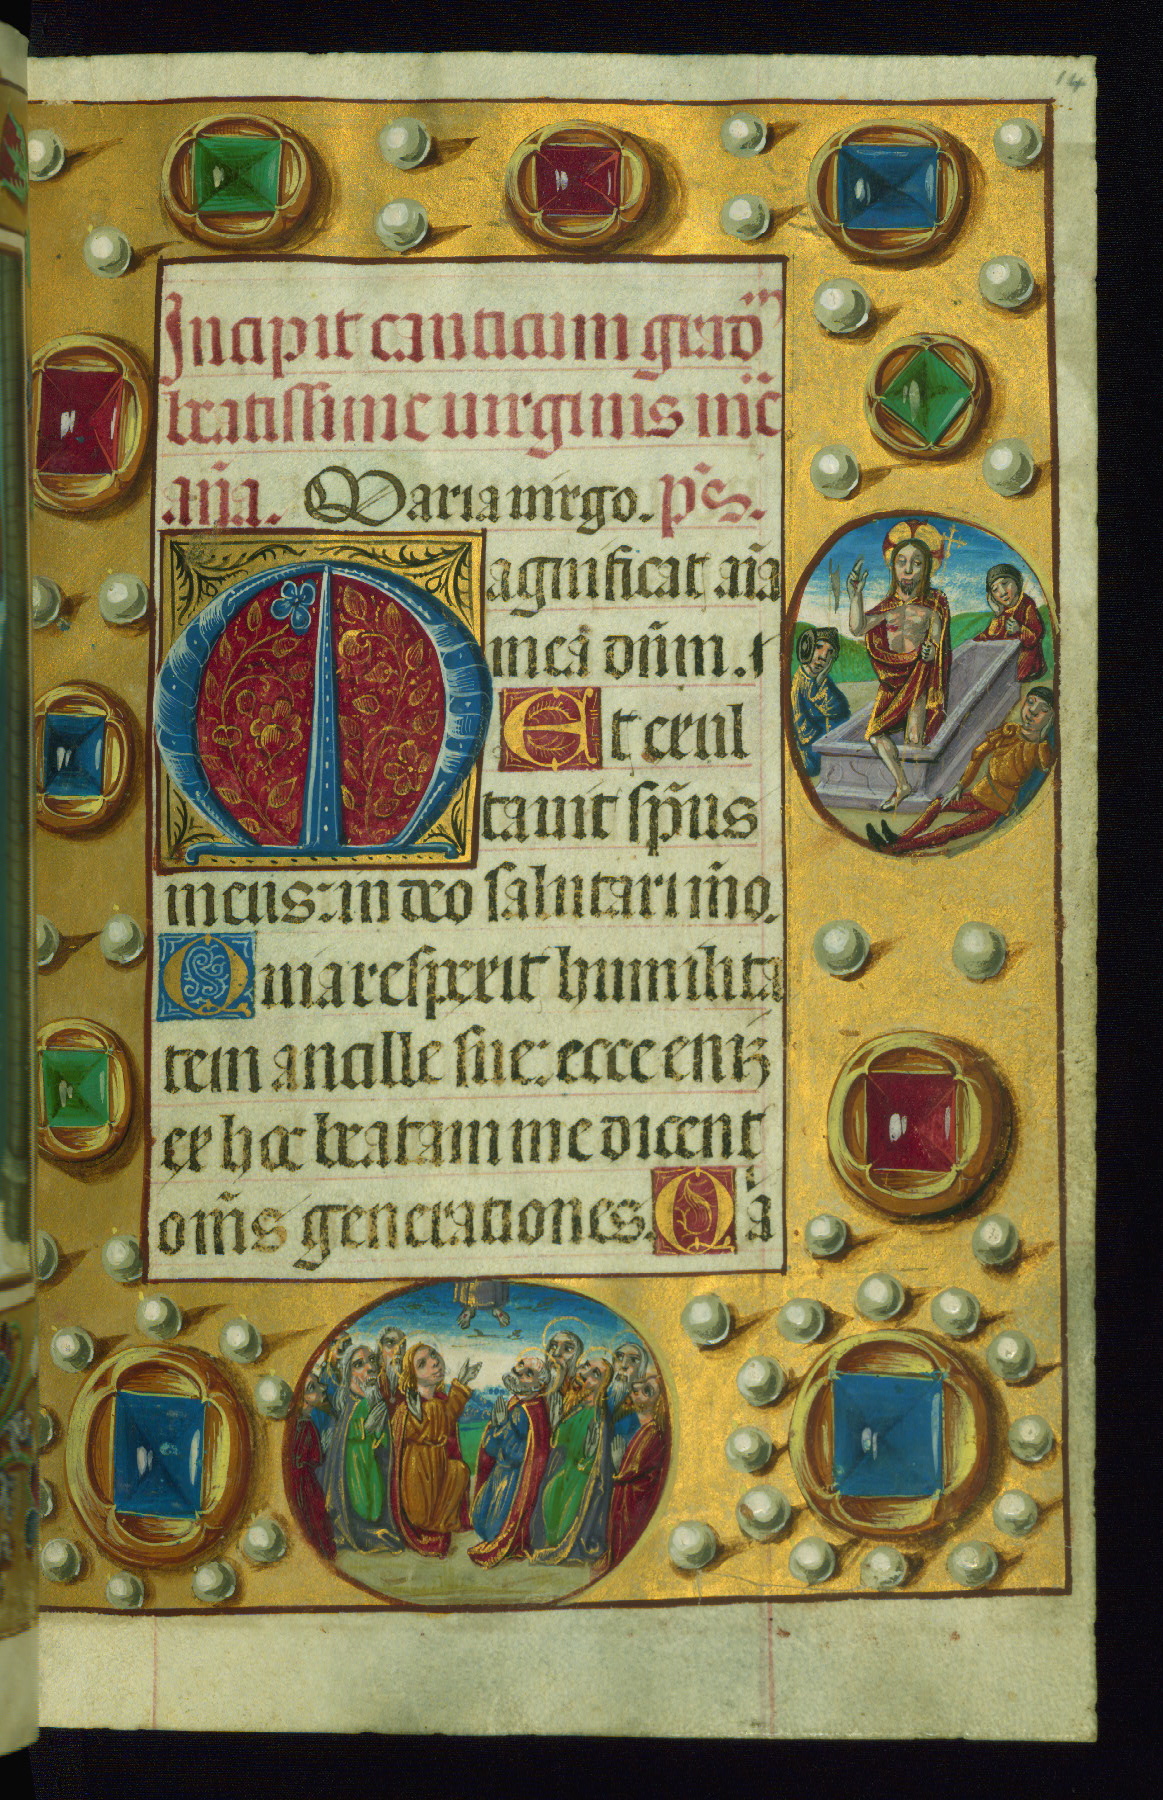 14
Incipit canticum grad̄
beatissime uirginis mr̄ie
an̄a. Maria uirgo. ps̄.
Magnificat an̄ia
mea dn̄um. t
Et exul
tauit sp̄us
meus: in deo salutari mō.
Quia respexit humilita
tem ancille sue: ecce eniꝫ
ex hoc beatam me dicent
om̄s generationes. Qia